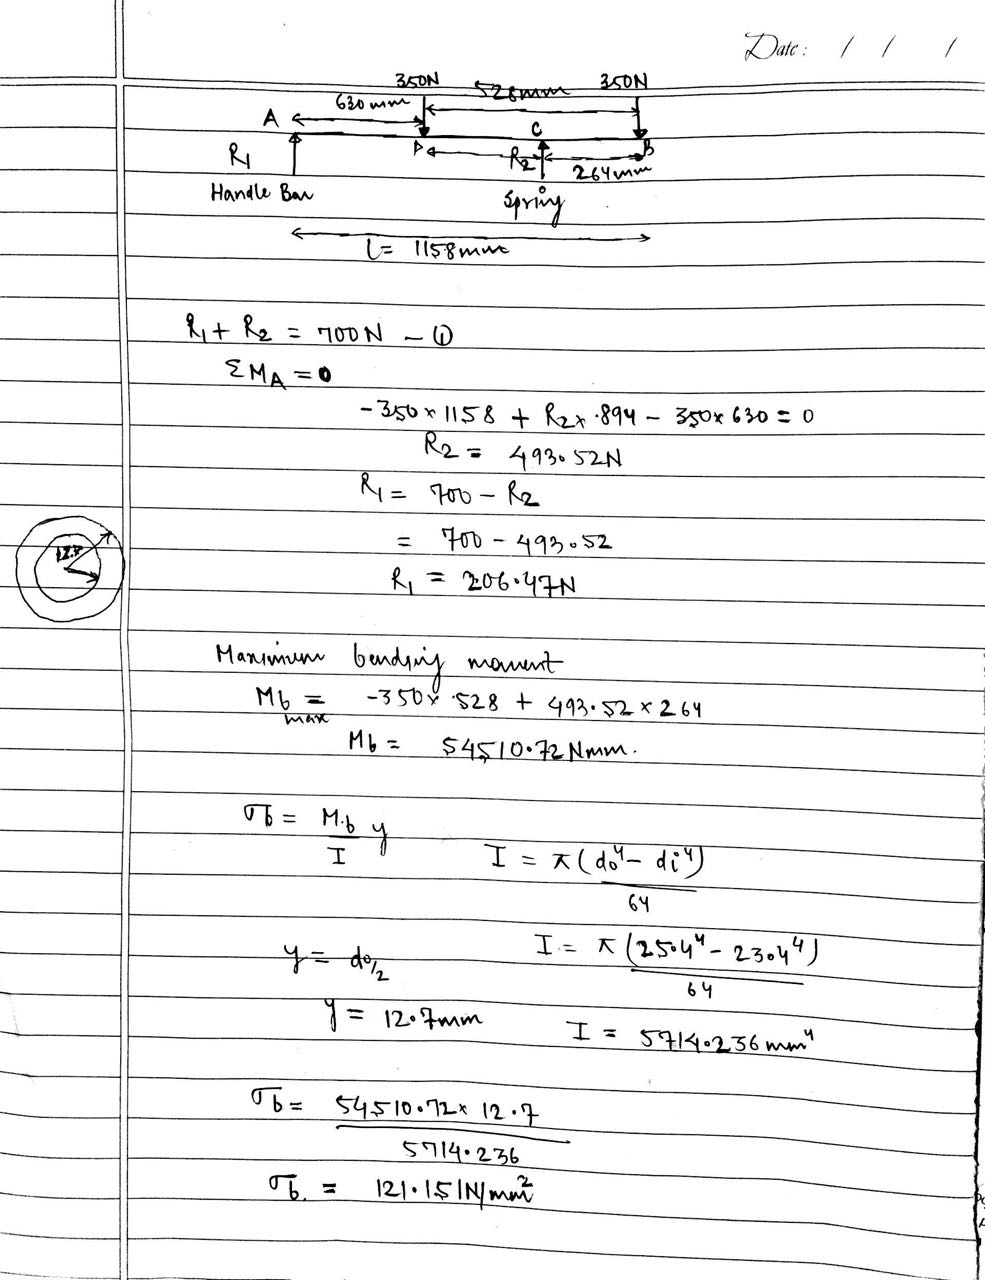 Date: / / /
350N 528mm 350N
630mm
A C
R₁ D R₂ B
264mm
Handle Bar Spring
L= 1158mm
R₁ + R₂ = 700N - ①
ΣM_A = 0
-350 × 1158 + R₂ × 894 - 350 × 630 = 0
R₂ = 493.52N
R₁ = 700 - R₂
= 700 - 493.52
12.7
R₁ = 206.47N
Maximum bending moment
Mb max = -350 × 528 + 493.52 × 264
Mb = 54510.72 Nmm.
σb = Mb/I y
I = π(do⁴ - di⁴)/64
I = π(25.4⁴ - 23.4⁴)/64
y = do/2
y = 12.7mm
I = 5714.236 mm⁴
σb = 54510.72 × 12.7 / 5714.236
σb = 121.151N/mm²